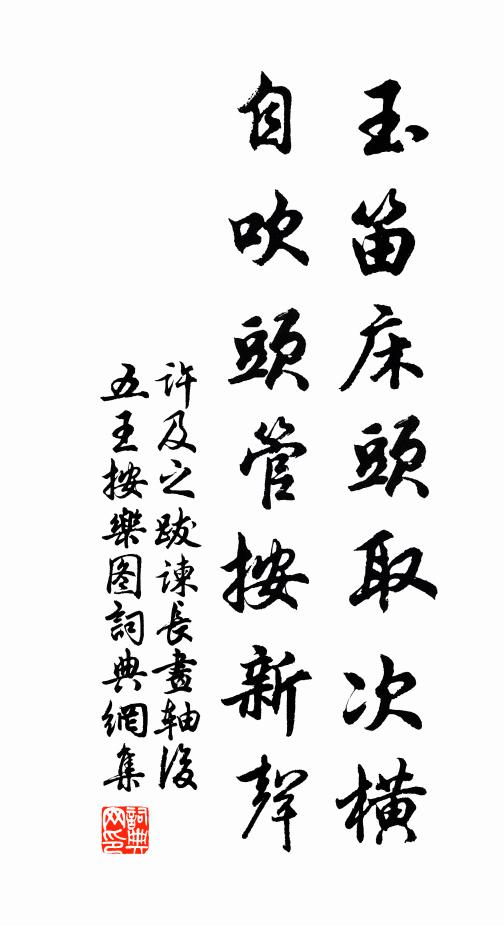 玉笛床頭取次橫
自吹頭管按新聲
許及之跋諫長晝軸後
五王按樂图詞典網集
詞典网印